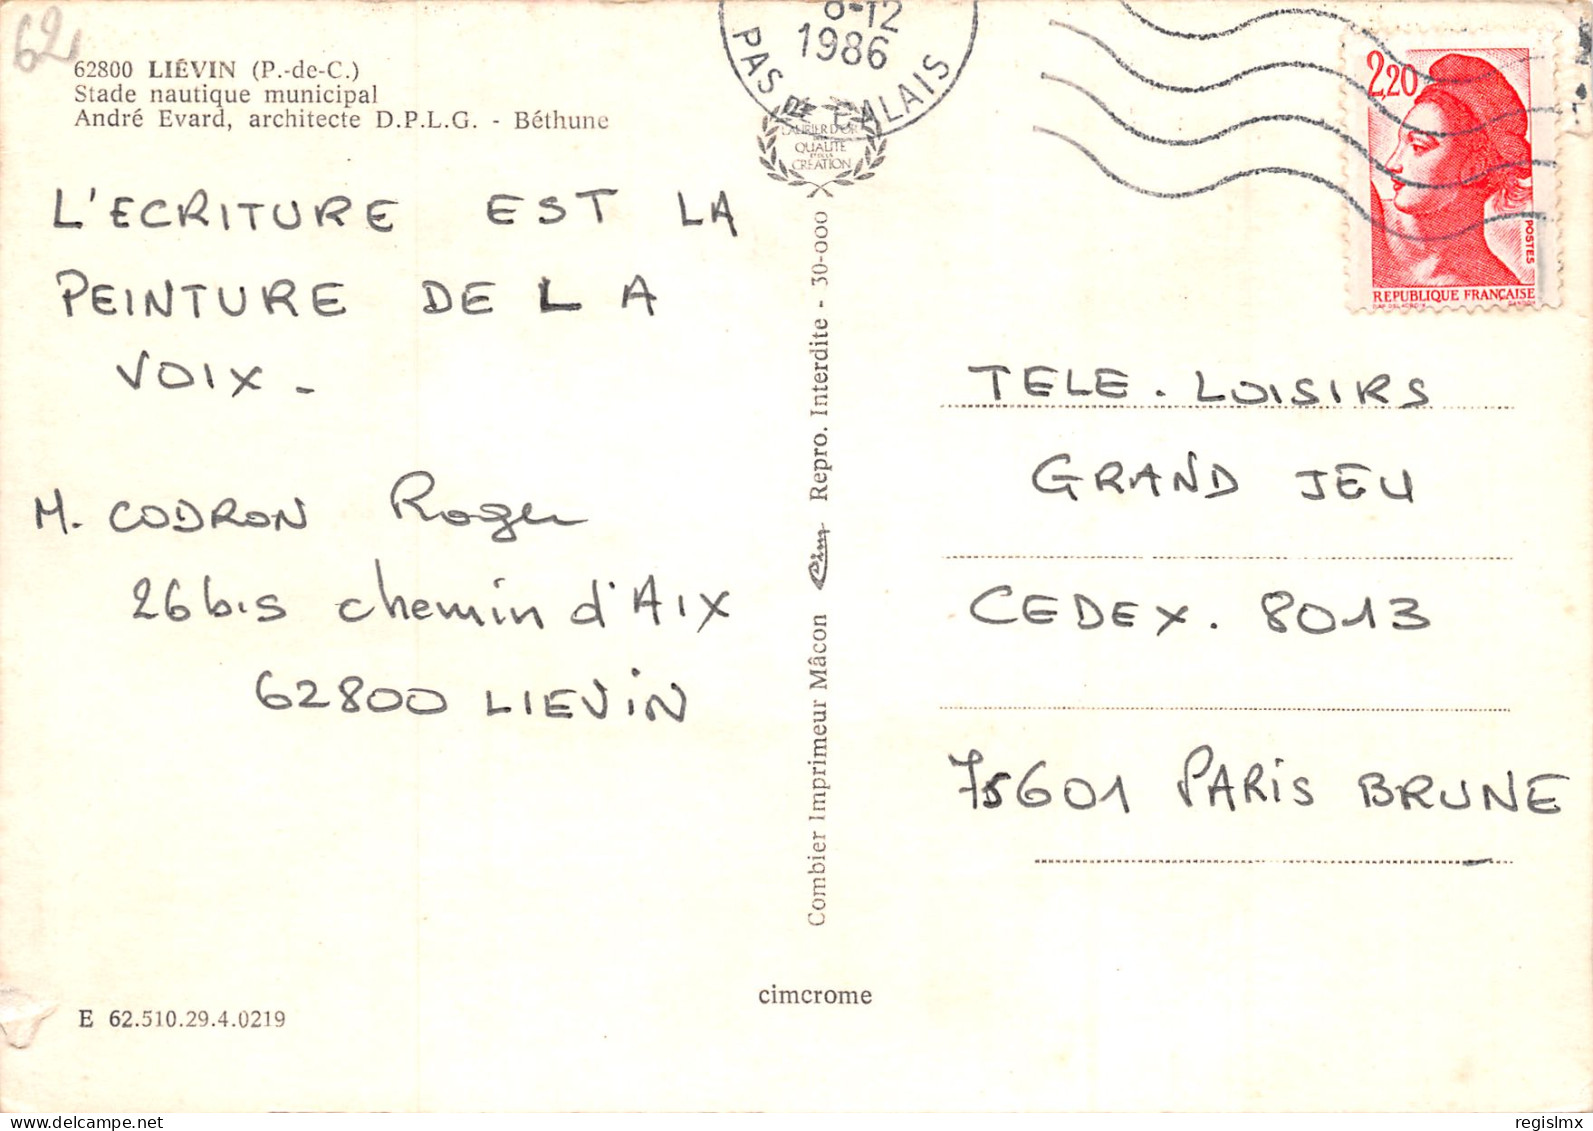 62
62800 LIÉVIN (P.-de-C.)
Stade nautique municipal
André Evard, architecte D.P.L.G. - Béthune
L'ECRITURE EST LA
PEINTURE DE LA
VOIX -
M. CODRON Roger
26 bis chemin d'AIX
62800 LIEVIN
E 62.510.29.4.0219
8-12
1986
PAS DE CALAIS
LAURIER D'OR
QUALITÉ
ET DE LA
CRÉATION
Combier Imprimeur Mâcon Cim Repro. Interdite - 30-000
cimcrome
2,20
POSTES
REPUBLIQUE FRANÇAISE
TELE. LOISIRS
GRAND JEU
CEDEX. 8013
75601 PARIS BRUNE
regislmx